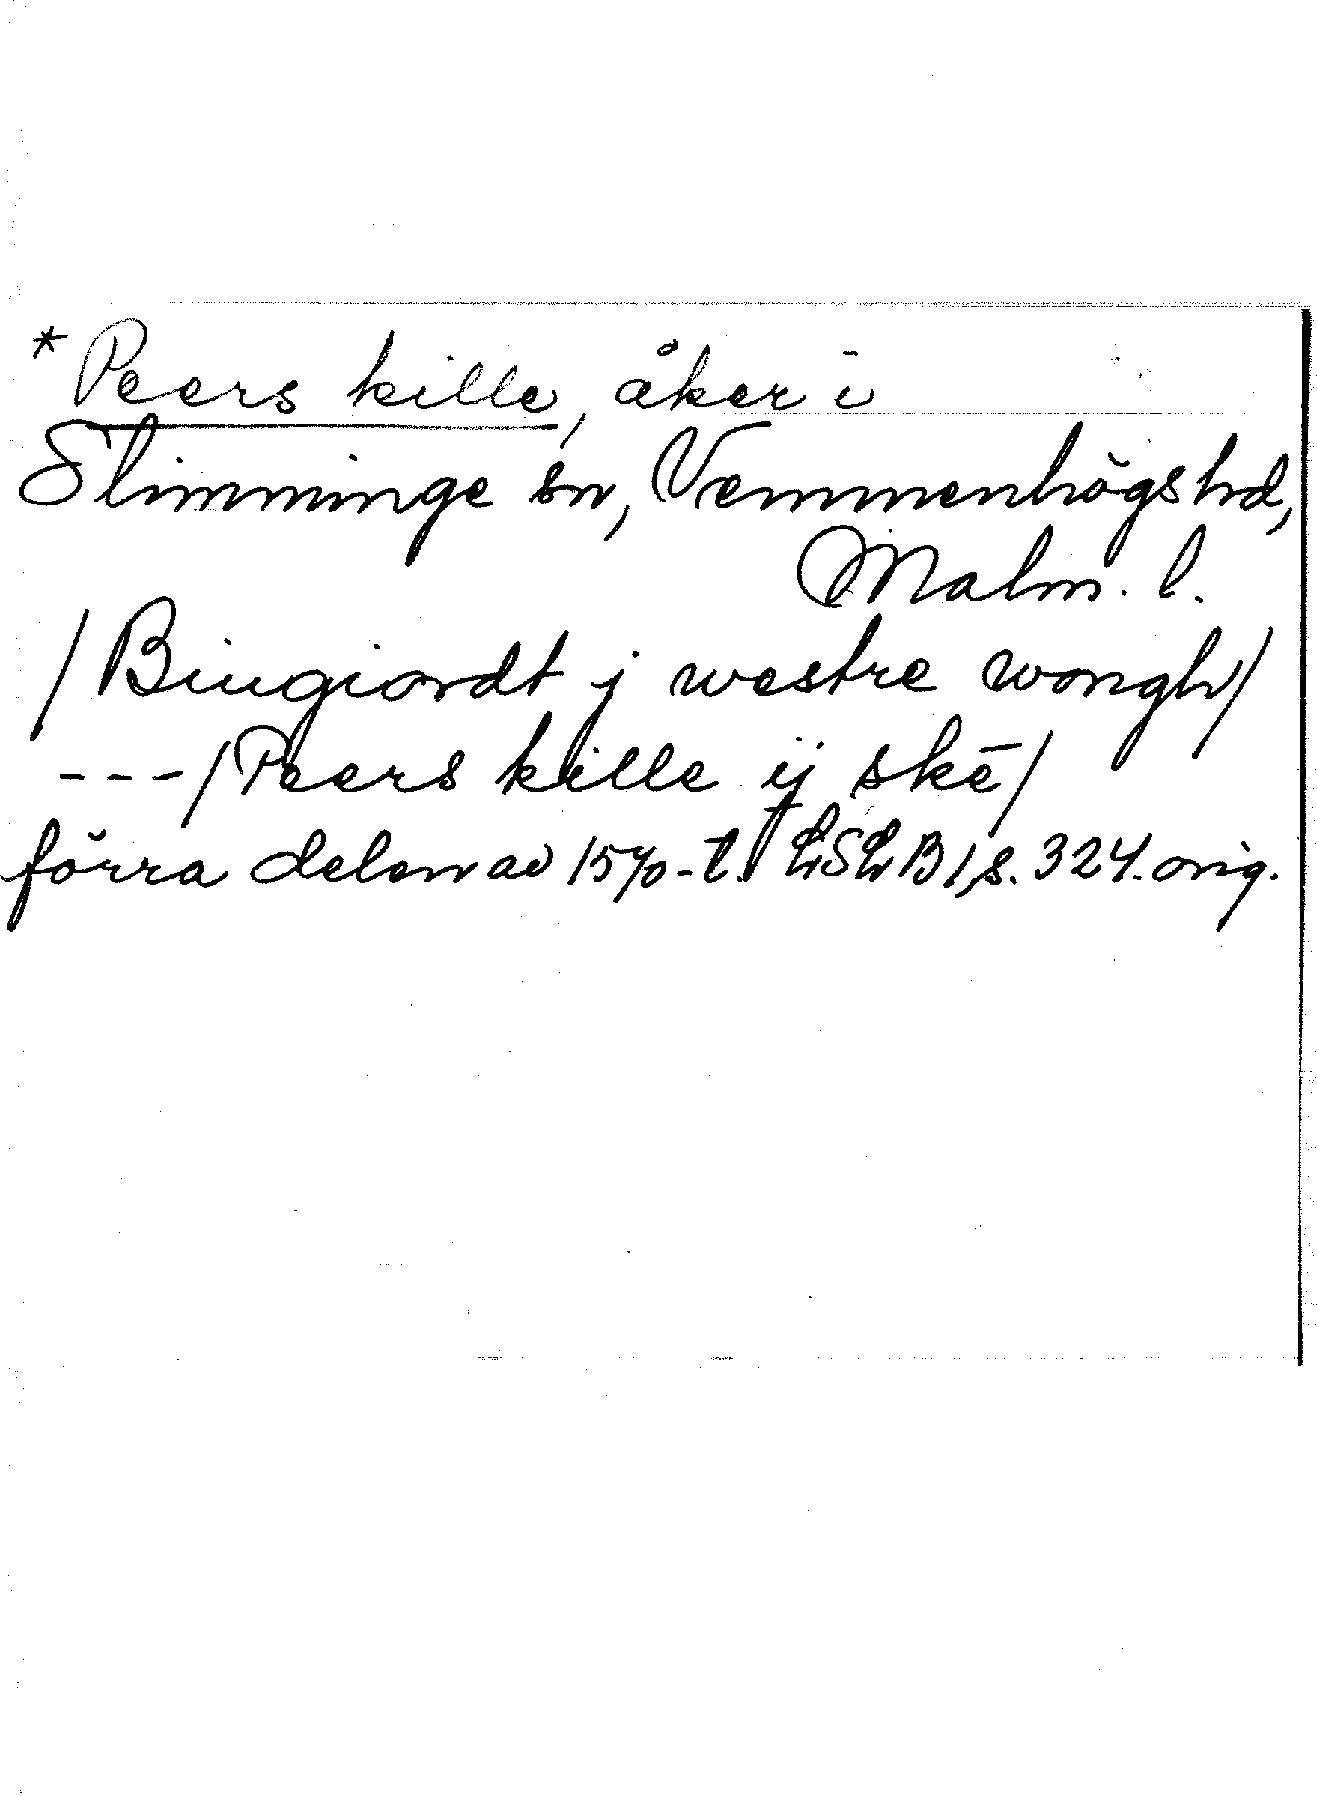 *Peers kille, åker i
Slimminge sn, Vemmenhögs hd,
Malm. l.
/Biugiordt j westre wongh/
---/Peers kille ij skē/
förra delen av 1570-t. LSLB1, s. 324. orig.